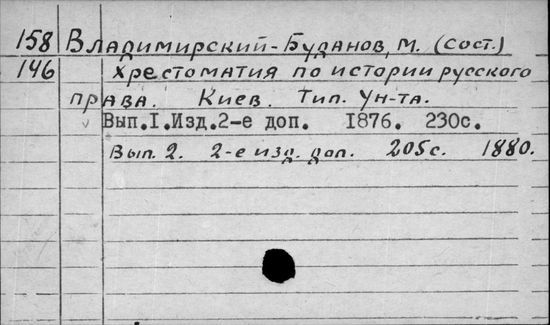 158 Владимирский-Буданов, М. (сост.)
146 Хрестоматия по истории русского
права. Киев. Тип. Ун-та.
Вып.I.Изд.2-е доп. 1876. 230с.
Вып. 2. 2-е изд. доп. 205с. 1880.